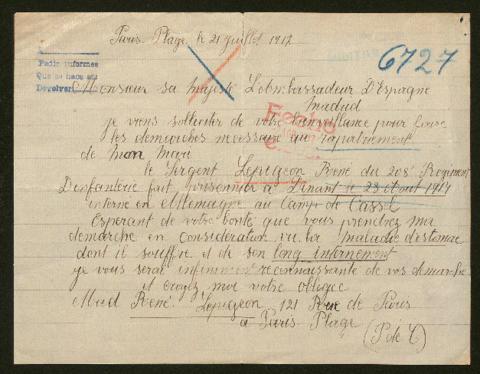 Paris-Plage, le 21 juillet 1917
6727
Pedir informes
Que se haga su
Devolver
Monsieur sa Majesté L'Ambassadeur D'Espagne
Madrid
je viens solliciter de votre bienveillance pour
les demarches necessaire au rapatriement
de mon Mari
le Sergent Lepigeon René du 208e Regiment
D'infanterie fait prisonnier a Dinant le 23 aout 1914
interné en Allemagne au Camp de Cassel
Esperant de votre bonté que vous prendrez ma
demarche en consideration vu la maladie d'estomac
dont il souffre et de son long internement
je vous serai infiniment reconnaissante de vos
et croyez moi votre obligée
Mad René Lepigeon 121 Rue de Paris
a Paris Plage
(P de C)